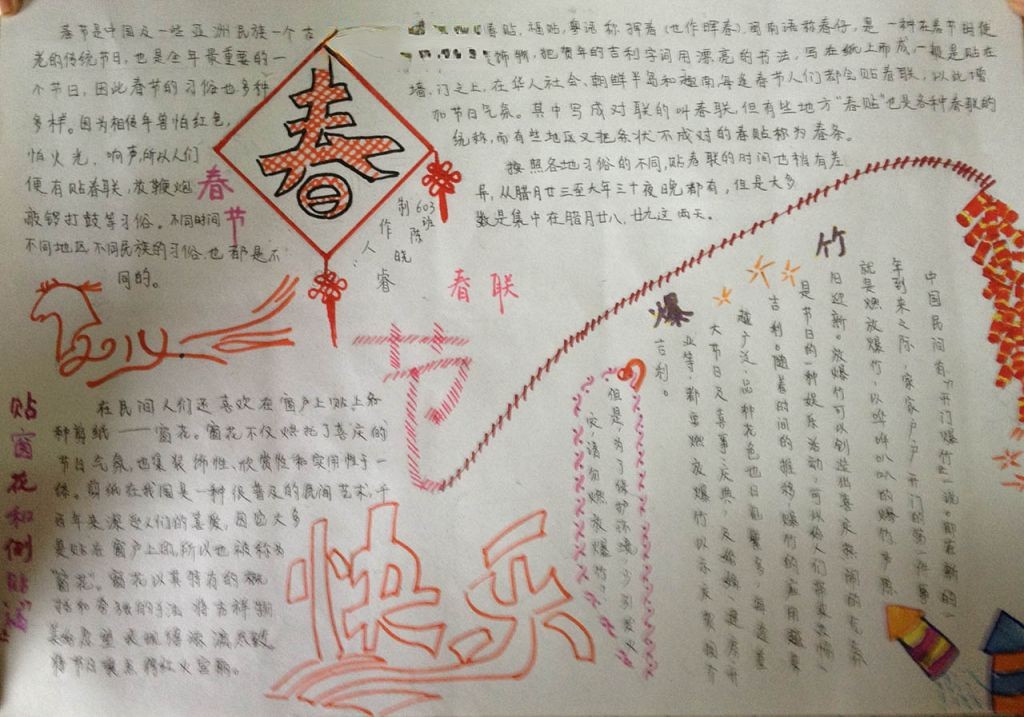 春节是中国及一些亚洲民族一个古
老的传统节日,也是全年最重要的一
个节日,因此春节的习俗也多种
多样。因为相传年兽怕红色,
怕火光、响声,所以人们
便有贴春联、放鞭炮
敲锣打鼓等习俗。不同时间
不同地区不同民族的习俗也都是不
同的。
春
春
节
制603
作 班
人 陈
晓
睿
春贴,福贴,粤语称挥春(也作晖春),闽南语称春仔,是一种在春节时使
饰物,把贺年的吉利字词用漂亮的书法,写在纸上而成,一般是贴在
墙、门之上,在华人社会、朝鲜半岛和越南每逢春节人们都会贴春联,以此增
加节日气氛。其中写成对联的叫春联,但有些地方“春贴”也是各种春联的
统称,而有些地区又把条状不成对的春贴称为春条。
按照各地习俗的不同,贴春联的时间也稍有差
异,从腊月廿三至大年三十夜晚都有,但是大多
数是集中在腊月廿八、廿九这两天。
春联
节
快乐
2014
爆竹
中国民间有“开门爆竹”一说。即在新的一
年到来之际,家家户户开门的第一件事
就是燃放爆竹,以哔哔叭叭的爆竹声除
旧迎新。放爆竹可以创造出喜庆热闹的气氛
是节日的一种娱乐活动,可以给人们带来欢愉
吉利。随着时间的推移,爆竹的应用越来
越广泛,品种花色也日见繁多,每逢重
大节日及喜事庆典,及婚嫁、建房、开
业等,都要燃放爆竹以示庆贺,
吉利。
但是,为了保护环境,少引发火
灾,请勿燃放爆竹。
贴窗花和倒贴“福”
在民间人们还喜欢在窗户上贴上各
种剪纸——窗花。窗花不仅烘托了喜庆的
节日气氛,也集装饰性、欣赏性和实用性于一
体。剪纸在我国是一种很普及的民间艺术,千
百年来深受人们的喜爱,因它大多
是贴在窗户上的,所以也被称为
“窗花”。窗花以其特有的概
括和夸张的手法将吉祥物
美好愿望表现得淋漓尽致
将节日装点得红火富丽。